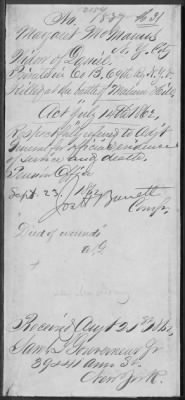 2154
No. 1837 No 31
Margaret McManus
N.Y. City
Widow of Daniel
Co B. 69th Rg. N.Y.V.
Killed at the battle of Malvern Hill
Act July 14th 1862,
Respectfully referred to Adjt
General for official evidence
of service and death.
Pension Office
Sept. 23. 1862
Jos H Barrett
Comr.
"Died of wounds"
A.G.
Received Augt 21st 1862,
Saml L Gouverneur Jr
39 & 41 Ann St.
New York.